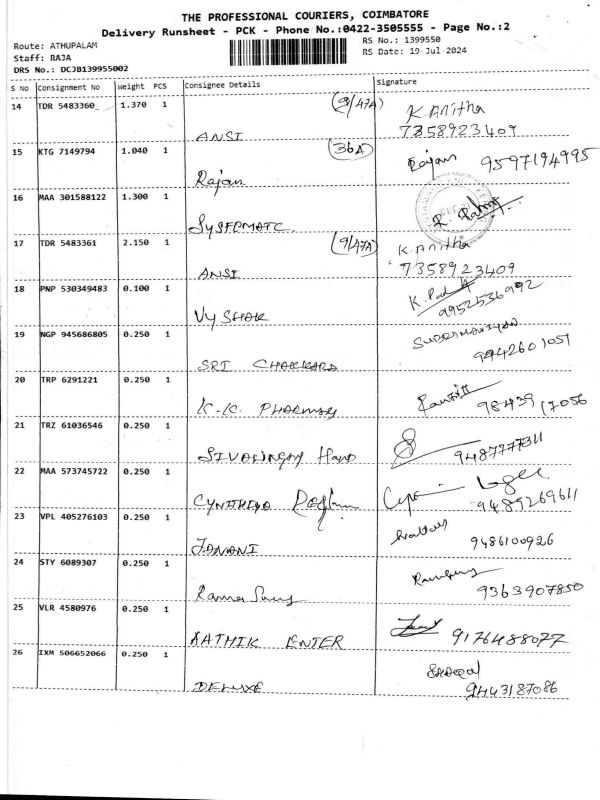 THE PROFESSIONAL COURIERS, COIMBATORE
Delivery Runsheet - PCK - Phone No.:0422-3505555 - Page No.:2
Route: ATHUPALAM
RS No.: 1399550
Staff: RAJA
RS Date: 19-Jul-2024
DRS No.: DCJB139955002
S No Consignment No Weight PCS Consignee Details Signature
14 TDR 5483360 1.370 1 (9/47A) K.Anitha
ANSI 7358923409
15 KTG 7149794 1.040 1 (36A) Rajan 9597194995
Rajan
16 MAA 301588122 1.300 1
17 TDR 5483361 2.150 1 (9/47A) K.Anitha
ANSI 7358923409
18 PNP 530349483 0.100 1
VySHAK 9952536992
19 NGP 945686805 0.250 1
SRI 9942601051
20 TRP 6291221 0.250 1
K.K. PHARMACY 98439 17056
21 TRZ 61036546 0.250 1
22 MAA 573745722 0.250 1
9489269611
23 VPL 405276103 0.250 1
JANANI 9486100926
24 STY 6089307 0.250 1
Rama 9363907850
25 VLR 4580976 0.250 1
KATHIK ENTER 9176488077
26 IXM 506652066 0.250 1
DELUXE 9443187086